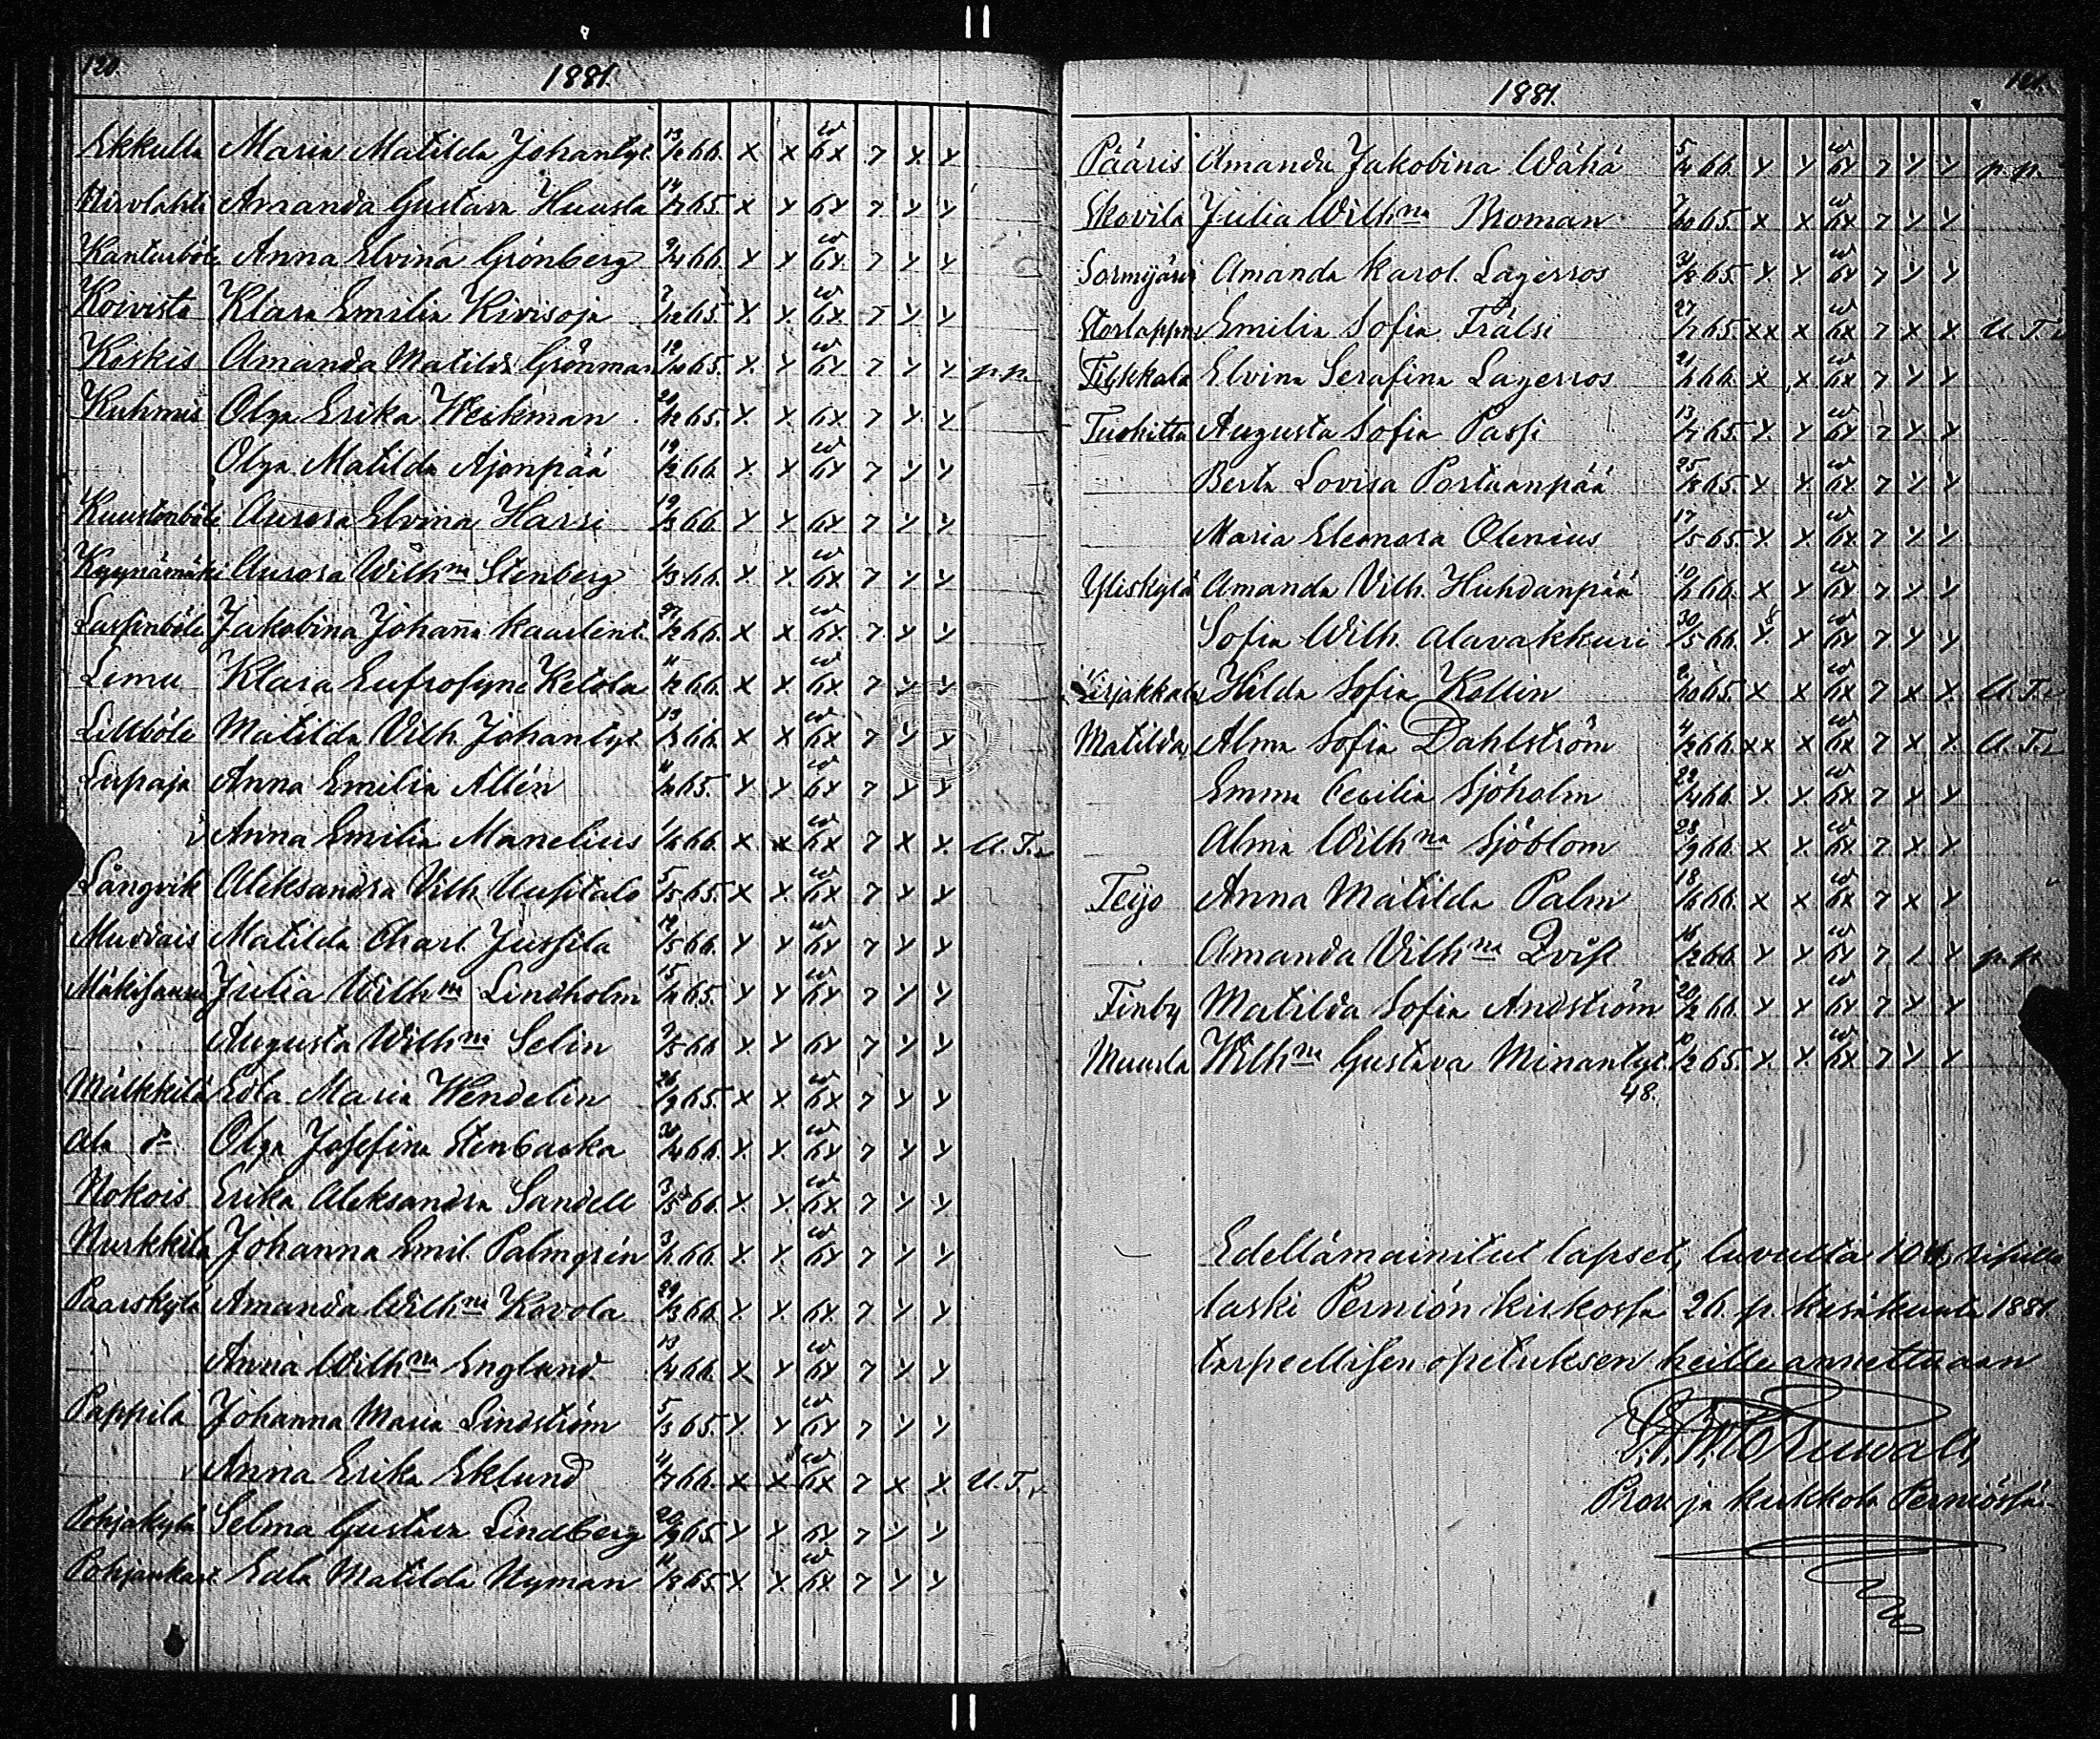 120.
1881.
Ekkulla Maria Matilda Johantyt. 13/2 66. x x w 6x 7 x x
Hirvlahti Amanda Gustava Huusla 14/7 65. x x 6x 7 x x
Kanturböle Anna Elvina Grönberg 9/4 66. x x w 6x 7 x x
Koivisto Klara Emilia Kivisoja 7/12 65. x x w 6x 7 x x
Koskis Amanda Matilda Grönman 12/10 65. x x w 6x 7 x x p.p.
Kuhmis Olga Erika Weckman 20/12 65. x x 6x 7 x x
Olga Matilda Ajonpää 19/2 66. x x w 6x 7 x x
Kuustenböle Aurora Elvina Harri 19/3 66. x x 6x 7 x x
Kyynämäki Aurora Wilhna Stenberg 1/3 66. x x w 6x 7 x x
Lassinböle Jakobina Johanna Kaarlent. 27/2 66. x x w 6x 7 x x
Lemu Klara Eufrosyne Ketola 11/2 66. x x w 6x 7 x x
Lillböle Matilda Vilh. Johantyt. 13/3 66. x x w 6x 7 x x
Lupaja Anna Emilia Allén 11/10 65. x x w 6x 7 x x
Anna Emilia Manelius 1/6 66. x x w 6x 7 x x U.T.
Långvik Aleksandra Vilh. Uusitalo 5/5 65. x x w 6x 7 x x
Muddais Matilda Charl. Jussila 12/5 66. x x w 6x 7 x x
Mäkisauru Julia Wilhna Lindholm 15/11 65. x x w 6x 7 x x
Augusta Wilhna Selin 9/5 66 x x 6x 7 x x
Mälkkilä Edla Maria Wendelin 26/9 65. x x w 6x 7 x x
Ala do Olga Josefina Stenbacka 30/4 66. x x w 6x 7 x x
Nokois Erika Aleksandra Sandell 3/5 66. x x w 6x 7 x x
Nurkkila Johanna Emil. Palmgrén 3/2 66. x x w 6x 7 x x
Paarskylä Amanda Wilhna Kavola 29/3 66. x x 6x 7 x x
Anna Wilhna Englund 13/4 66. x x w 6x 7 x x
Pappila Johanna Maria Lindström 5/3 65. x x w 6x 7 x x
Anna Erika Eklund 4/7 66. x x w 6x 7 x x U.T.
Pohjakylä Selma Gustava Lindberg 20/9 65 x x 6x 7 x x
Pohjankart. Edla Matilda Nyman 11/8 65. x x w 6x 7 x x
121.
1881.
Pääris Amanda Jakobina Wähä 5/4 66. x x w 6x 7 x x p.p.
Skovila Julia Wilhna Broman 7/10 65. x x w 6x 7 x x
Sormijärvi Amanda Karol. Lagerros 31/8 65. x x w 6x 7 x x
Storlappm Emilia Sofia Frälsi 27/7 65. xx x w 6x 7 x x U.T.
Tilkkala Elvina Serafina Lagerros 21/2 66. x x w 6x 7 x x
Tuohitta Augusta Sofia Passi 13/7 65. x x w 6x 7 x x
Berta Lovisa Portaanpää 25/8 65. x x w 6x 7 x x
Maria Eleonora Olenius 17/5 65. x x w 6x 7 x x
Yliskylä Amanda Vilh. Huhdanpää 10/2 66. x x w 6x 7 x x
Sofia Wilh. Alavakkuri 30/5 66. x x w 6x 7 x x
Kirjakkala Hilda Sofia Kollin 2/10 65. x x w 6x 7 x x U.T.
Matilda Alma Sofia Dahlström 4/2 66. xx x w 6x 7 x x U.T.
Emma Cecilia Sjöholm 22/4 66. x x w 6x 7 x x
Alma Wilhna Sjöblom 28/9 66. x x w 6x 7 x x
Teijo Anna Matilda Palm 18/6 66. x x w 6x 7 x x
Amanda Vilhna Qvist 16/2 66. x x w 6x 7 x x p.p.
Finby Matilda Sofia Andström 20/2 66. x x w 6x 7 x x
Muurla Wilhna Gustava Minantyt. 10/2 65. x x w 6x 7 x x
48.
Edellämainitut lapset, luvulta 104, ripille
laski Perniön kirkossa 26. p. kesäkuuta 1881.
tarpeellisen opetuksen heille annettuaan
Rov. ja kirkkoh. Perniössä.